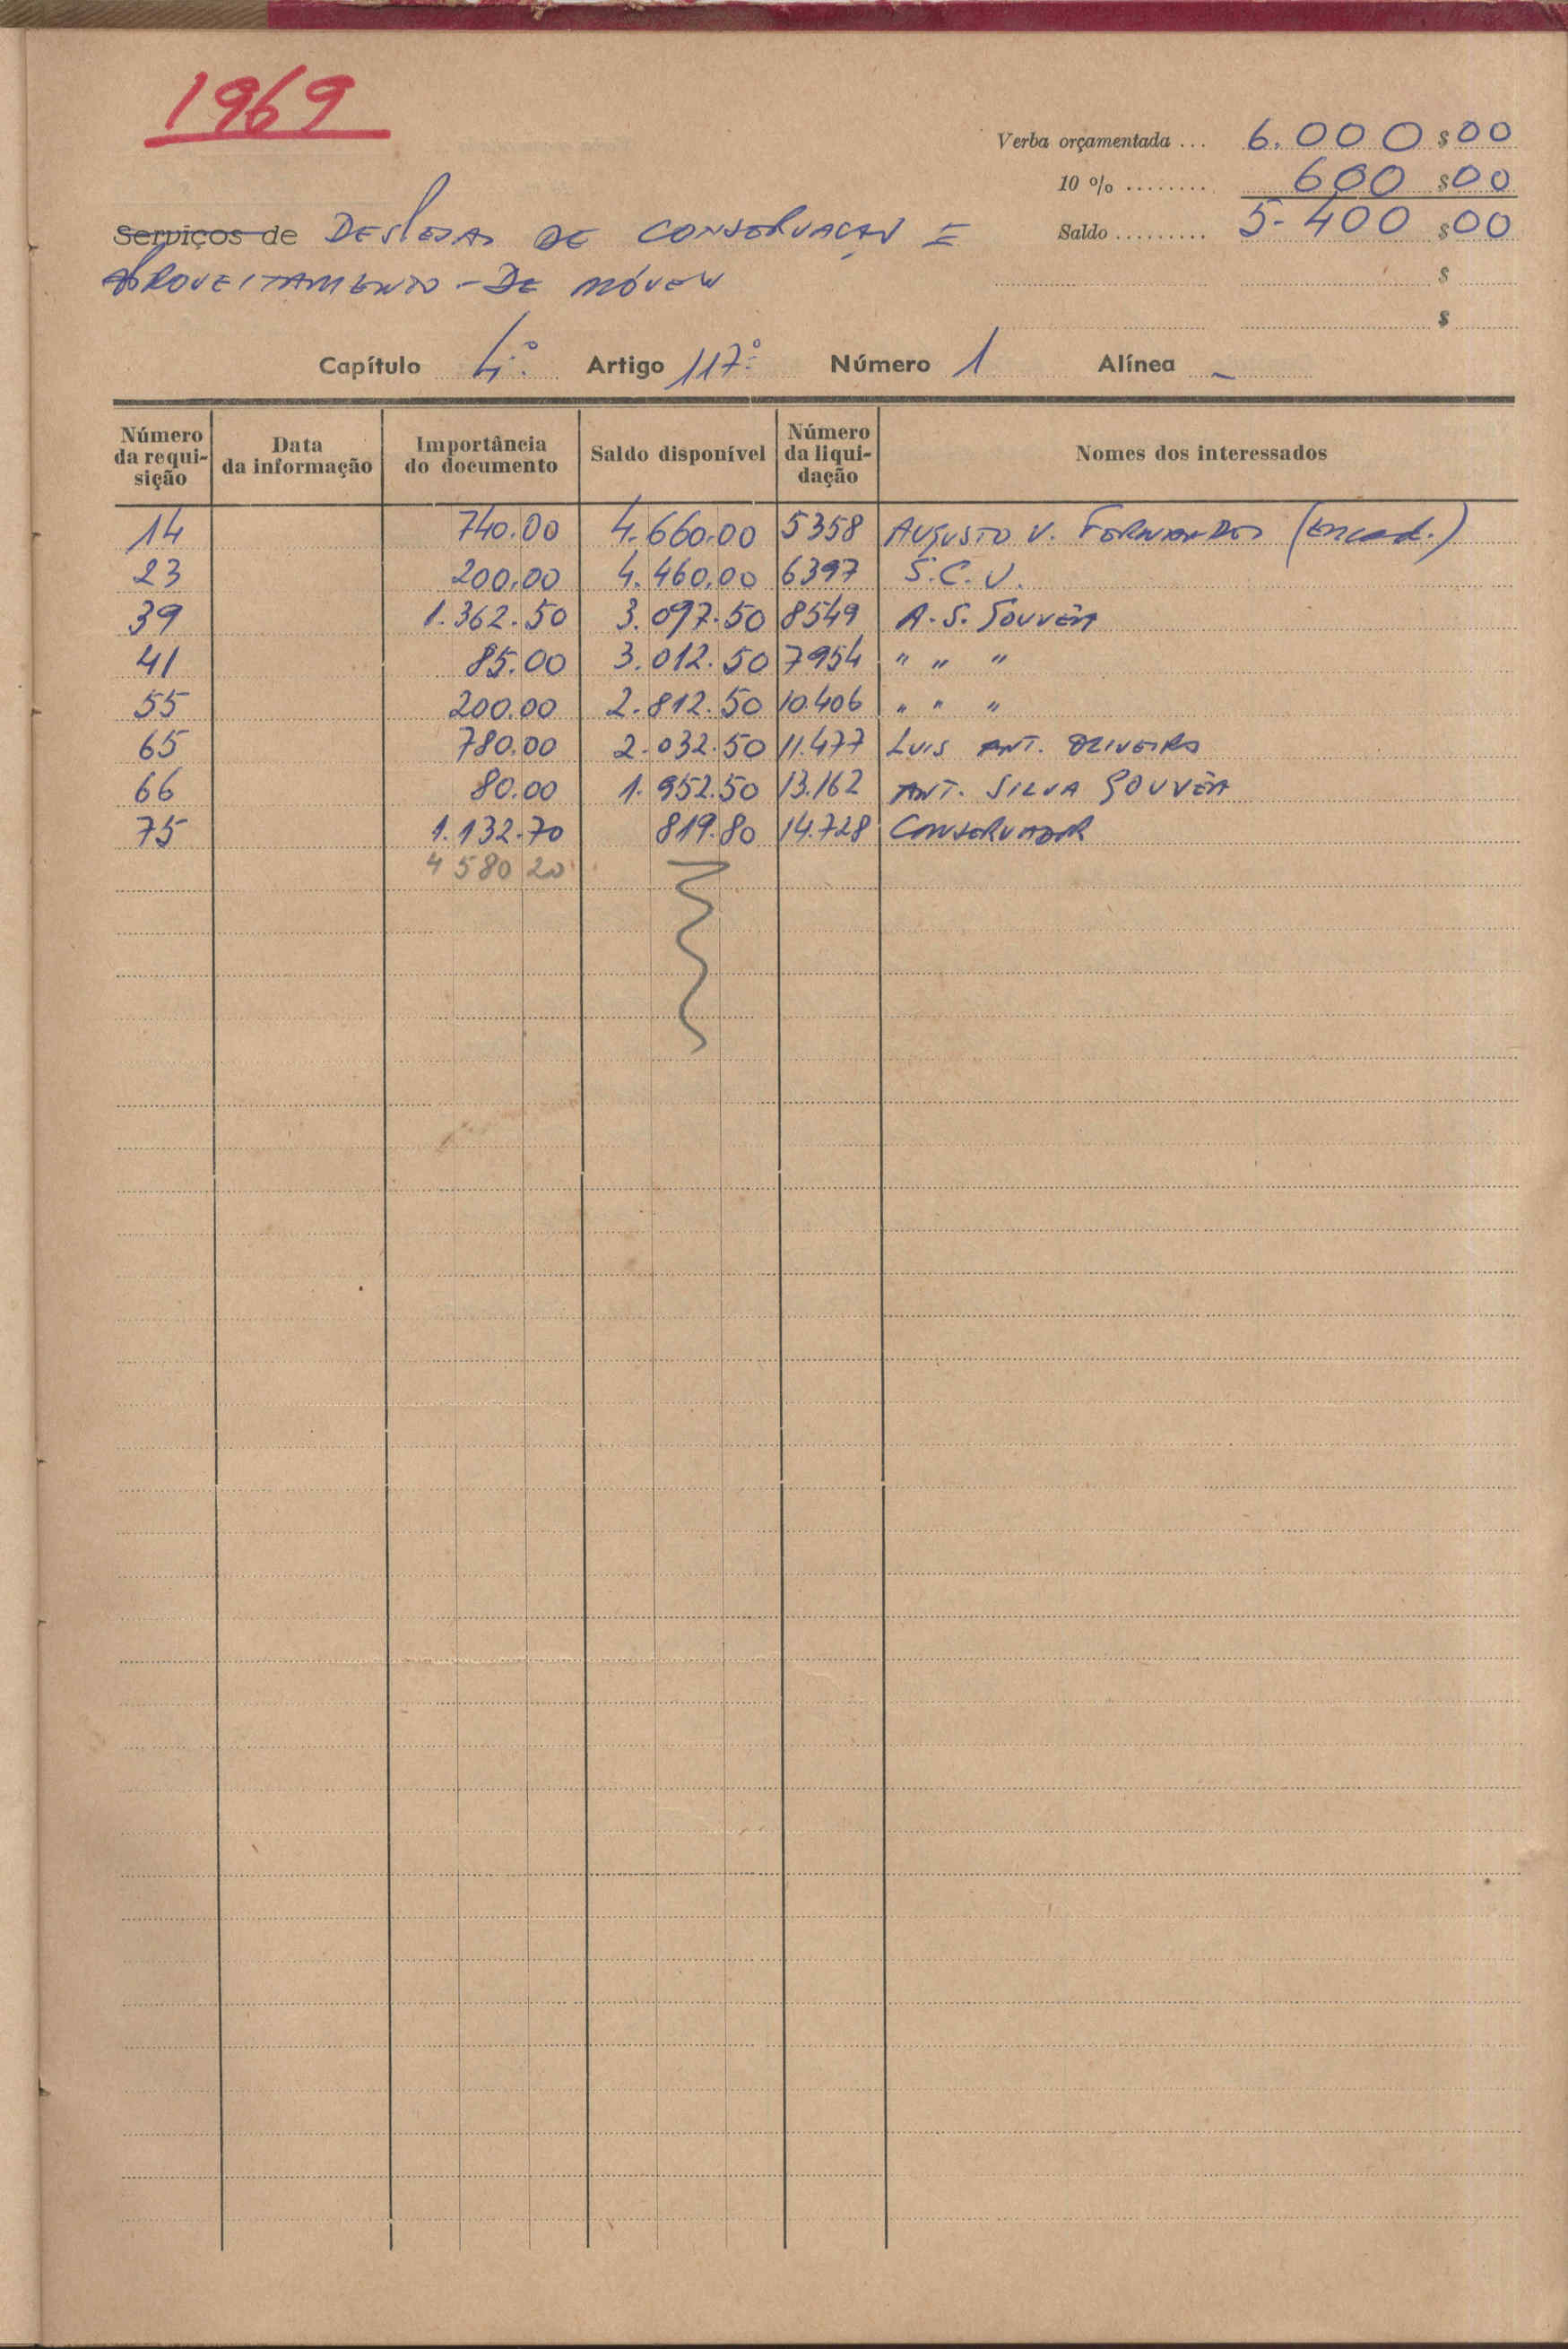 1969
Verba orçamentada ... 6.000 $ 00
10 % ........ 600 $ 00
Serviços de DESPESAS DE CONSERVAÇÃO E
Saldo ......... 5.400 $ 00
APROVEITAMENTO - DE MÓVEIS
$
$
Capítulo 4.º Artigo 117.º Número 1 Alínea -
Número da requi-sição Data da informação Importância do documento Saldo disponível Número da liqui-dação Nomes dos interessados
14 740.00 4.660.00 5358 AUGUSTO V. FERNANDES (Encad.)
23 200.00 4.460.00 6397 S.C.U.
39 1.362.50 3.097.50 8549 A.S. GOUVÊA
41 85.00 3.012.50 7954 " " "
55 200.00 2.812.50 10.406 " " "
65 780.00 2.032.50 11.477 LUIS ANT. OLIVEIRA
66 80.00 1.952.50 13.162 ANT. SILVA GOUVÊA
75 1.132.70 819.80 14.728 CONSERVADOR
4 580 20